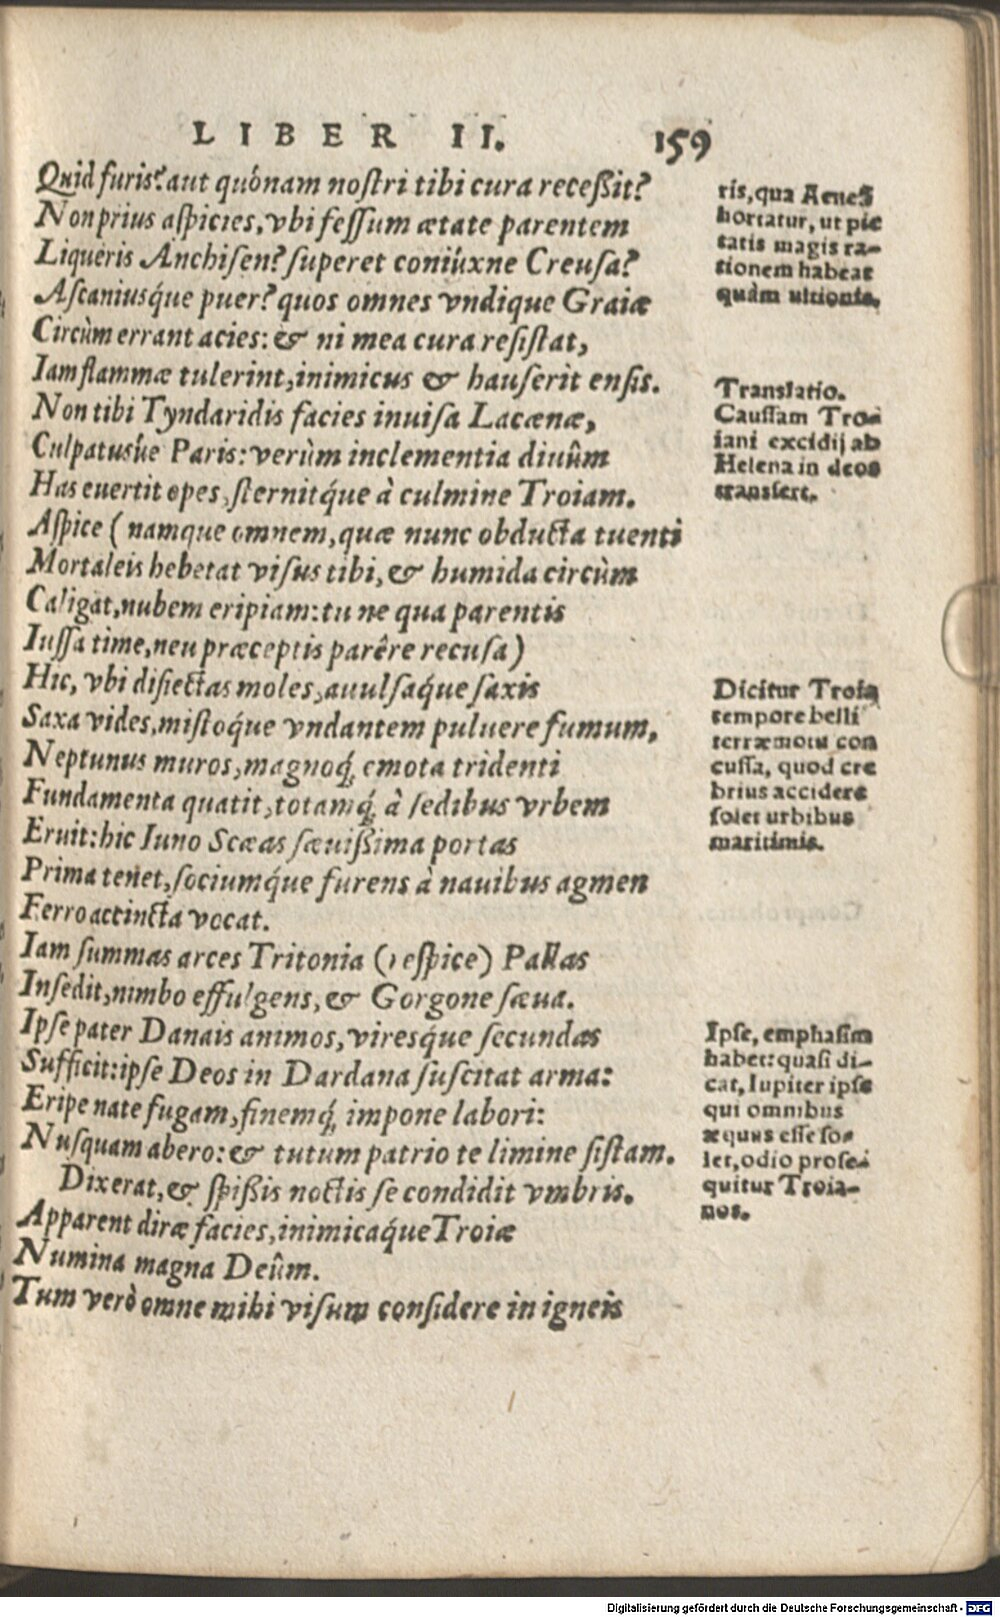 LIBER II. 159
Quid furis? aut quònam nostri tibi cura receßit?
Non prius aspicies, vbi fessum ætate parentem
Liqueris Anchisen? superet coniúxne Creusa?
Ascaniusq́ue puer? quos omnes vndique Graiæ
Circùm errant acies: & ni mea cura resistat,
Iam flammæ tulerint, inimicus & hauserit ensis.
Non tibi Tyndaridis facies inuisa Lacænæ,
Culpatusúe Paris: verùm inclementia diuûm
Has euertit opes, sternitq́ue à culmine Troiam.
Aspice (namque omnem, quæ nunc obducta tuenti
Mortaleis hebetat visus tibi, & humida circùm
Caligat, nubem eripiam: tu ne qua parentis
Iussa time, neu præceptis parêre recusa)
Hic, vbi disiectas moles, auulsaq́ue saxis
Saxa vides, mistoq́ue vndantem puluere fumum,
Neptunus muros, magnoq́; emota tridenti
Fundamenta quatit, totamq́; à sedibus vrbem
Eruit: hic Iuno Scæas sæuißima portas
Prima tenet, sociumq́ue furens à nauibus agmen
Ferro accincta vocat.
Iam summas arces Tritonia (respice) Pallas
Insedit, nimbo effulgens, & Gorgone sæua.
Ipse pater Danais animos, viresq́ue secundas
Sufficit: ipse Deos in Dardana suscitat arma:
Eripe nate fugam, finemq́; impone labori:
Nusquam abero: & tutum patrio te limine sistam.
Dixerat, & spißis noctis se condidit vmbris.
Apparent diræ facies, inimicaq́ue Troiæ
Numina magna Deûm.
Tum verò omne mihi visum considere in igneis
ris, qua Aeneã
hortatur, ut pie
tatis magis ra-
tionem habeat
quàm ultionis.
Translatio.
Caussam Tro-
iani excidij ab
Helena in deos
transfert.
Dicitur Troia
tempore belli
terræmotu con
cussa, quod cre
brius accidere
solet urbibus
maritimis.
Ipse, emphasim
habet: quasi di-
cat, Iupiter ipse
qui omnibus
æquus esse so-
let, odio prose-
quitur Troia-
nos.
Digitalisierung gefördert durch die Deutsche Forschungsgemeinschaft - DFG